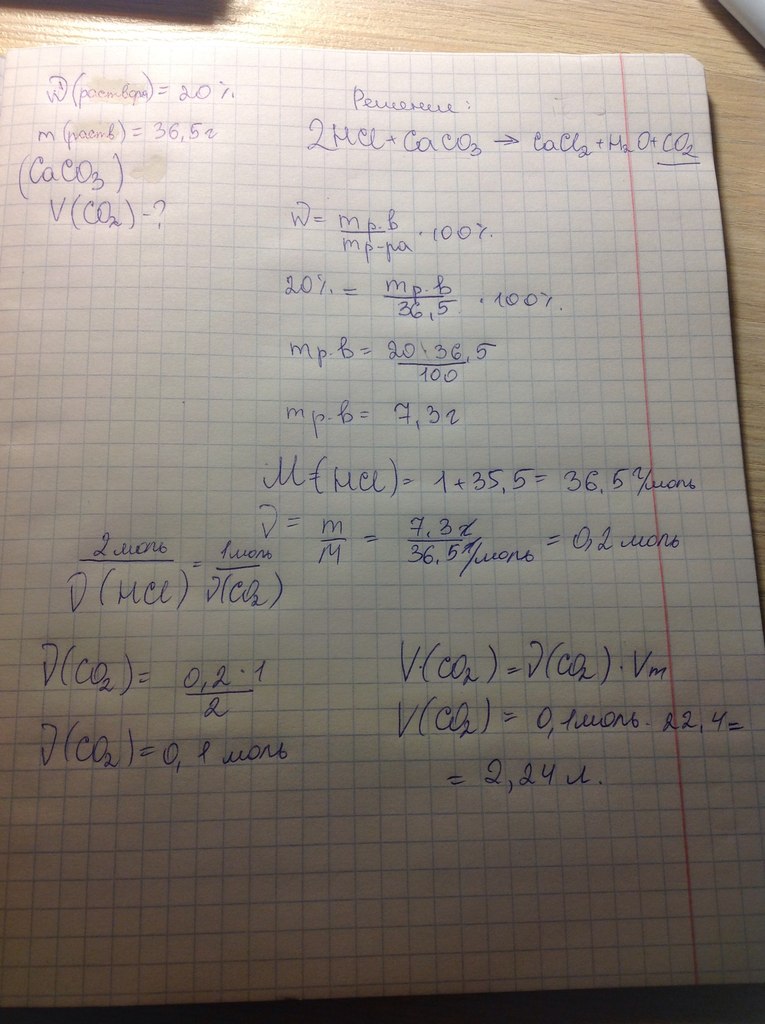 W(раствора) = 20%
m(раств) = 36,5г
(CaCO₃)
V(CO₂) - ?
Решение:
2HCl + CaCO₃ → CaCl₂ + H₂O + CO₂
W = mр.в / mр-ра · 100%.
20% = mр.в / 36,5 · 100%.
mр.в = 20 · 36,5 / 100
mр.в = 7,3г
M = (HCl) = 1 + 35,5 = 36,5 г/моль
ν = m / M = 7,3г / 36,5 г/моль = 0,2 моль
2 моль / ν(HCl) = 1 моль / ν(CO₂)
ν(CO₂) = 0,2 · 1 / 2
ν(CO₂) = 0,1 моль
V(CO₂) = ν(CO₂) · Vm
V(CO₂) = 0,1 моль · 22,4 =
= 2,24 л.